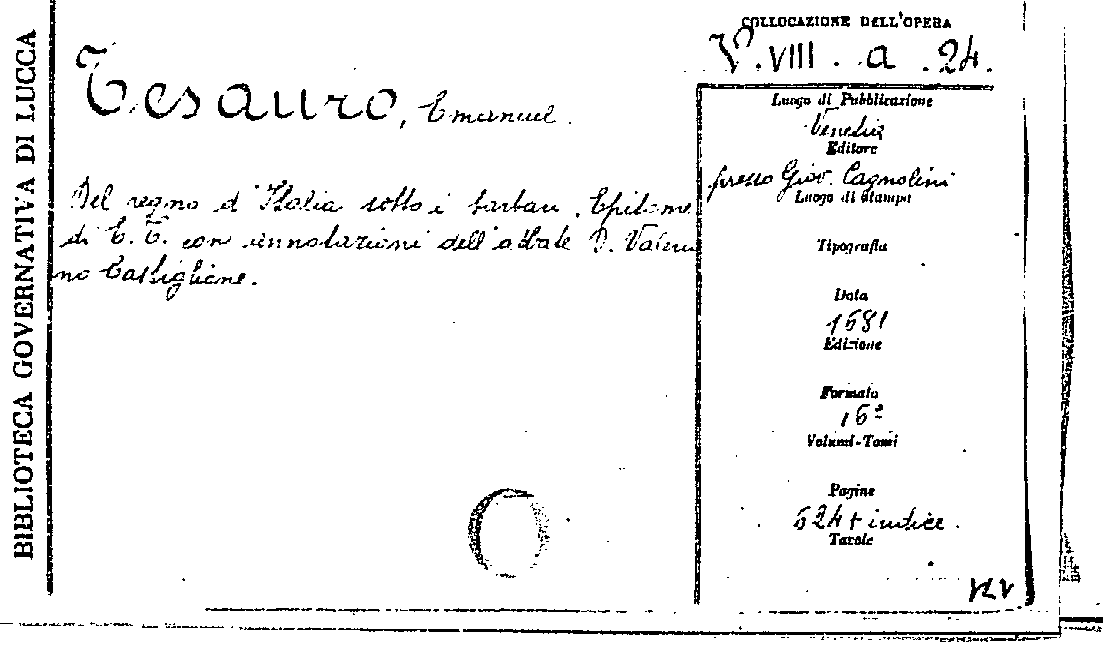 BIBLIOTECA GOVERNATIVA DI LUCCA
COLLOCAZIONE DELL'OPERA
V. VIII. a. 24.
Tesauro, Emanuel.
Del regno d'Italia sotto i barbari. Epitome
di E. T. con annotazioni dell'abbate D. Valeria
no Castiglione.
Luogo di Pubblicazione
Venezia
Editore
presso Giov. Cagnolini
Luogo di stampa
Tipografia
Data
1681
Edizione
Formato
16º
Volumi-Tomi
Pagine
624 + indice.
Tavole